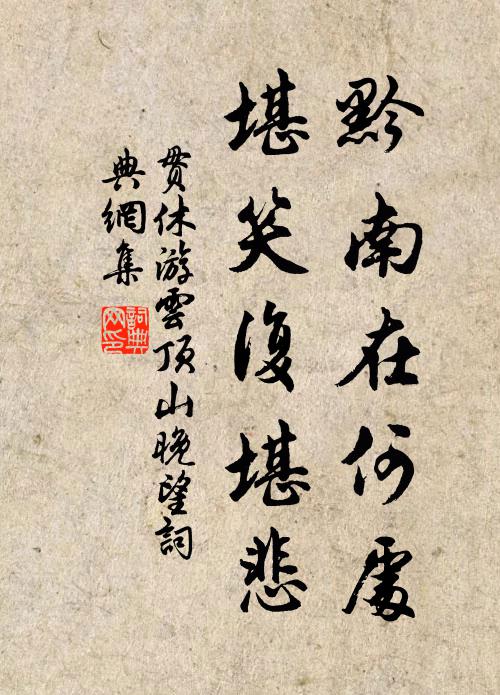 黔南在何處
堪笑復堪悲
貫休游雲頂山晚望詞
典網集
詞典网印